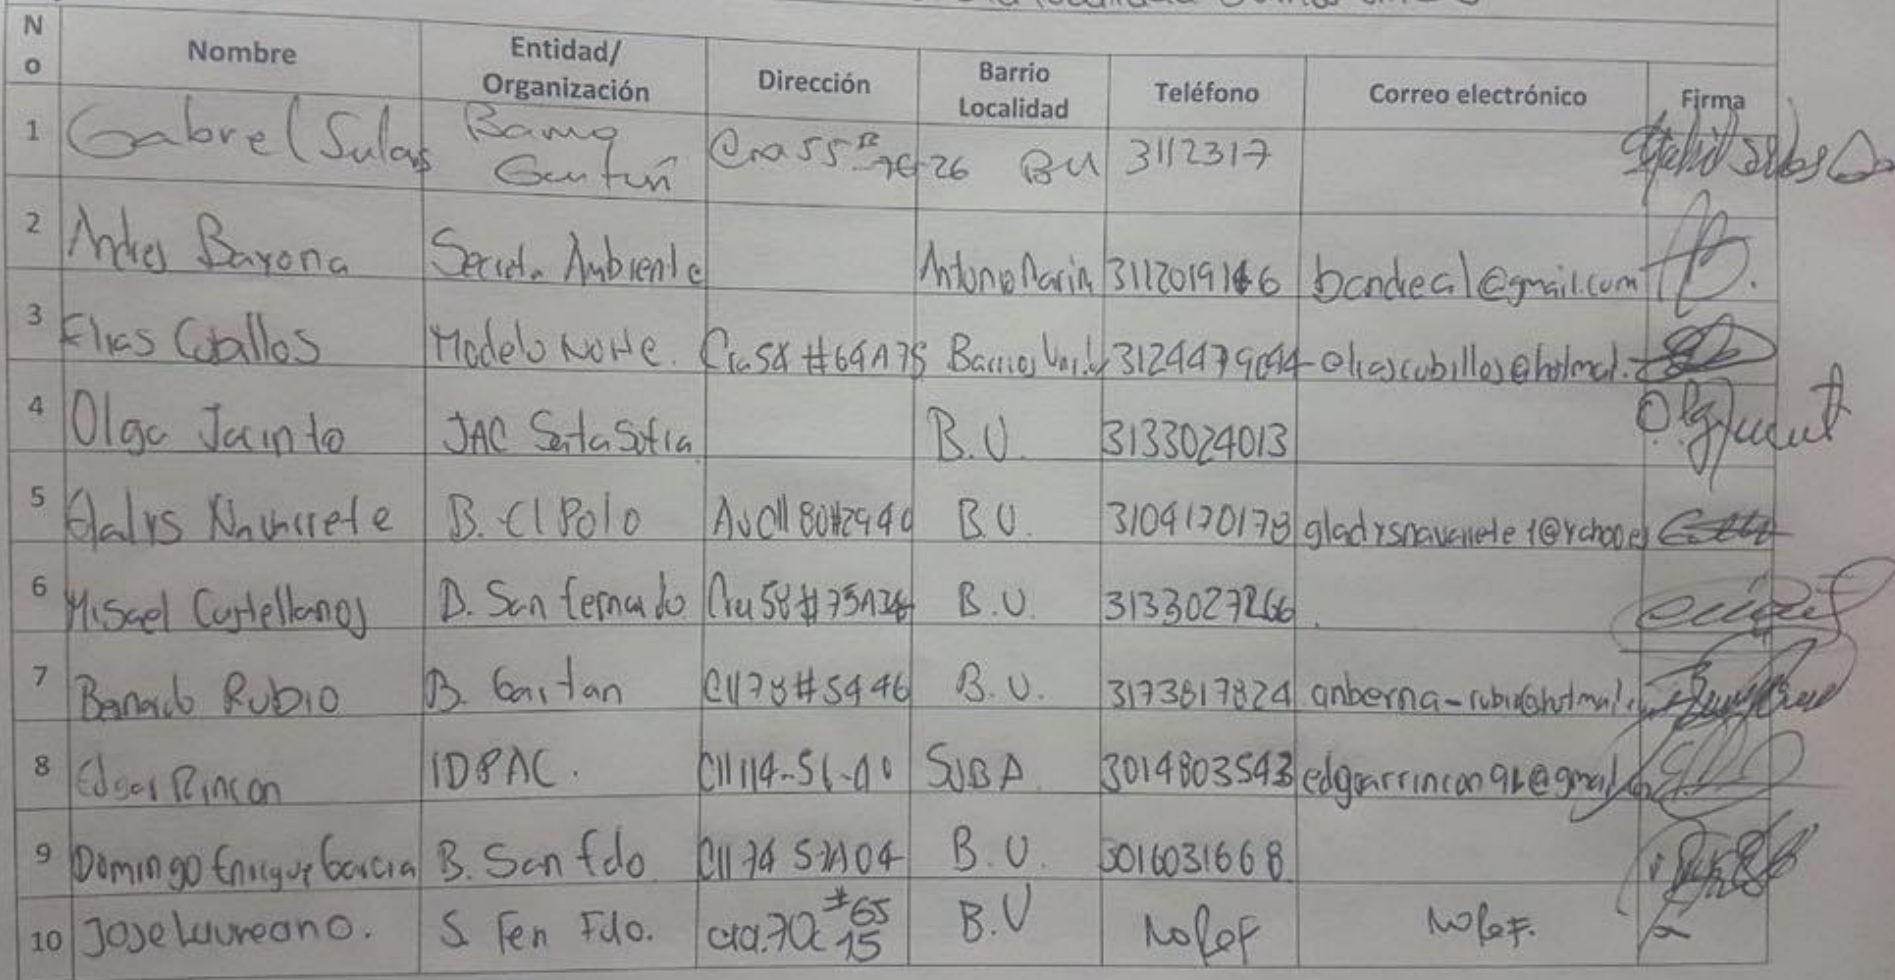 No Nombre Entidad/Organización Dirección Barrio Localidad Teléfono Correo electrónico Firma
1 Gabrel Salas Barrio Gaitan BU 3112317
2 Andres Bayona Secret. Ambiente Antonio Narin bandreal@gmail.com
3 Elias Cubillos Modelo Norte. Cra 58 #64A75 Barrios Unid eliascubillos@hotmal.
4 Olga Jacinto JAC Santa Sofia B.U. 3133024013
5 Gladys Navarrete B. El Polo B.U. 3104170178 gladysnavarrete1@yahooes
6 Misael Castellanos B. San Fernado B.U. 3133027266
7 Bernardo Rubio B. Gaitan Cll 78 #5446 B.U. 3173817824 anberna-rubio@hotmal.
8 Edgar Rincon IDPAC. SUBA 3014803543
9 Domingo Enrique Garcia B. San Fdo B.U. 3016031668
10 Jose Laureano. S. Fen Fdo. cra.70c #65 15 B.U No Ref No Ref.